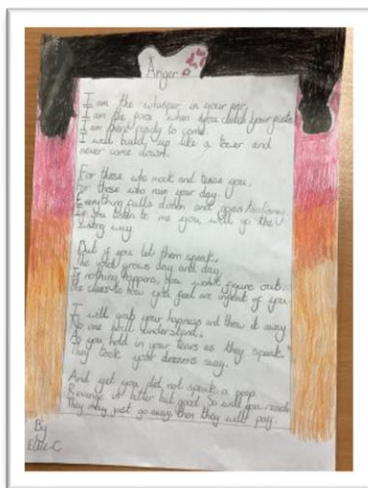 Anger
I am the whisper in your ear,
I am the pose when you clutch your fists
I am here ready to come.
I will build up like a tower and
never come down.
For those who mock and tease you,
For those who ruin your day.
Everything falls down and goes
If you listen to me you will go the
wrong way
But if you let them speak,
The void grows day and day,
If nothing happens, you won't figure out.
The clues to how you feel are infront of you.
I will grab your hapiness and throw it away
No one will understand.
As you hold in your tears as they speak
They took your dreams away.
And yet you did not speak a peep.
Revenge is bitter but good. So will you
They may just go away then they will pay.
By
-C